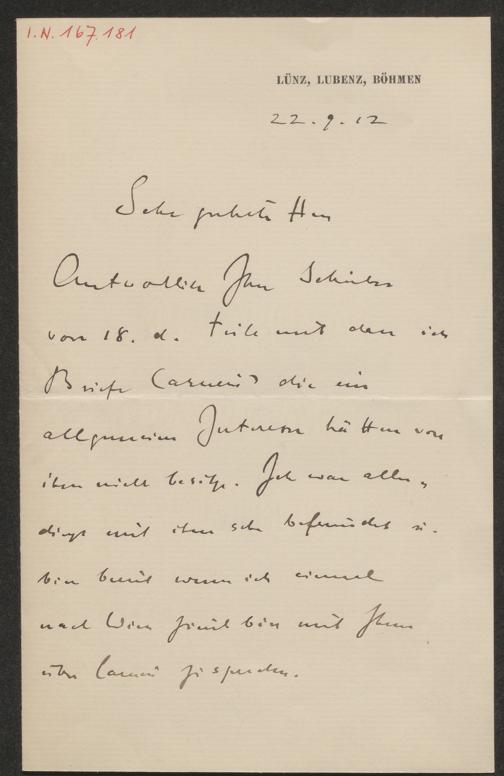 I.N. 167.181
LÜNZ, LUBENZ, BÖHMEN
22.9.12
Sehr geehrter Herr
Antwortlich Ihres Schreibens
vom 18. d. teile mit dass ich
Briefe Carneris die ein
allgemeines Interesse hätten von
ihm nicht besitze. Ich war aller-
dings mit ihm sehr befreundet u.
bin bereit wenn ich einmal
nach Wien bin mit Ihnen
über Carneri zu sprechen.